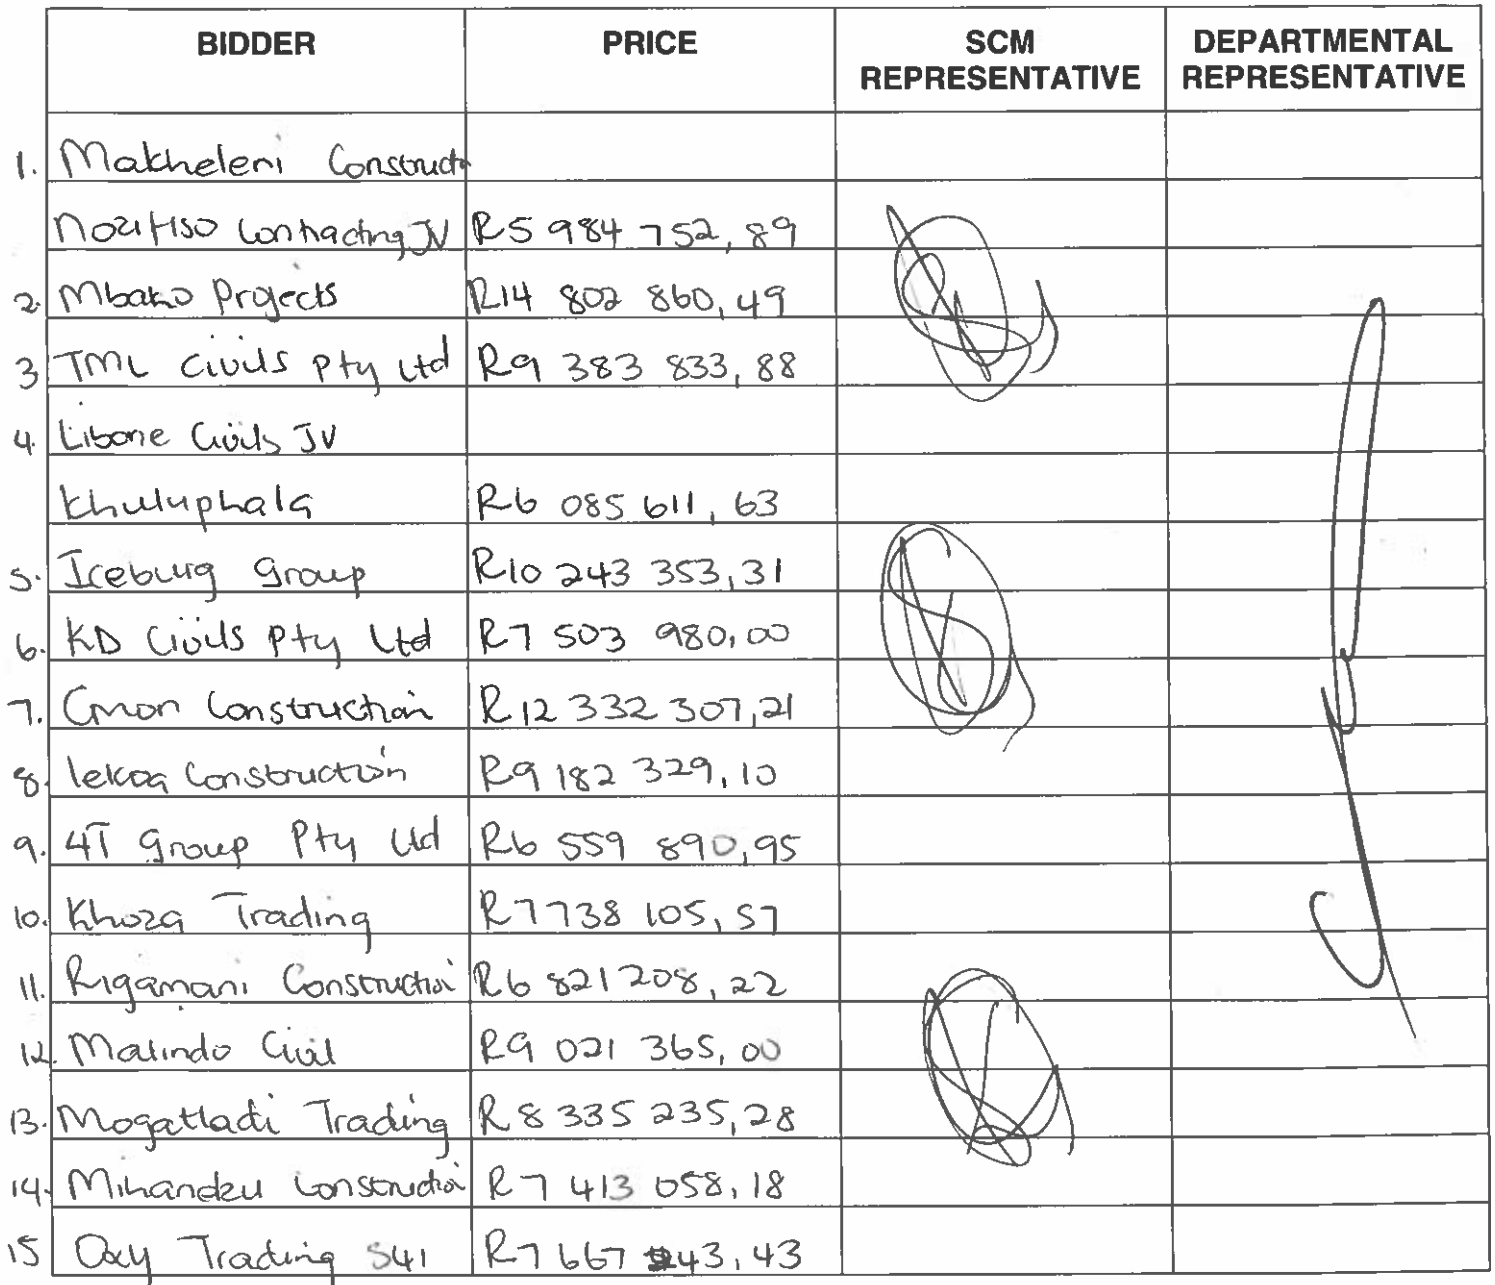 BIDDER PRICE SCM REPRESENTATIVE DEPARTMENTAL REPRESENTATIVE
1. Makheleni Constructn
Nozihiso Contracting JV R5 984 752,89
2. Mbako Projects R14 802 860,49
3 TML Civils Pty Ltd R9 383 833,88
4. Libone Civils JV
Khuluphala R6 085 611,63
5. Iceburg Group R10 243 353,31
6. KD Civils Pty Ltd R7 503 980,00
7. Cmon Construction R12 332 307,21
8. lekoa Construction R9 182 329,10
9. 4T Group Pty Ltd R6 559 890,95
10. Khoza Trading R7738 105,57
11. Rigamani Construction R6 821 208,22
12. Malindo Civil R9 021 365,00
13. Mogatladi Trading R8 335 235,28
14. Mihandzu Construction R7 413 058,18
15 Oxy Trading 541 R7 667 43,43